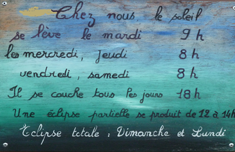 Chez nous le soleil
se lève le mardi 9h
les mercredi, jeudi 8h
vendredi, samedi 8h
Il se couche tous les jours 18h
Une éclipse partielle se produit de 12 à 14h
Eclipse totale, Dimanche et Lundi